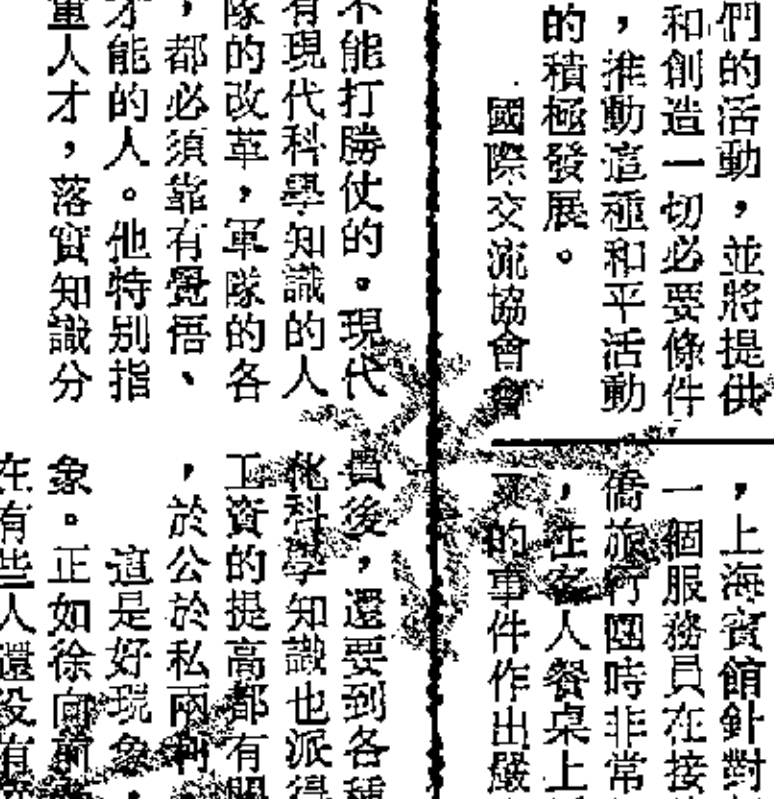 們的活動，並將提供
和創造一切必要條件
，推動這種和平活動
的積極發展。
國際交流協會會
，上海賓館針對
一個服務員在接
僑旅行團時非常
，往客人餐桌上
的事件作出嚴
不能打勝仗的。現代
有現代科學知識的人
隊的改革，軍隊的各
，都必須靠有覺悟、
才能的人。他特别指
量人才，落實知識分
後，還要到各種
化科學知識也派得
工資的提高都有
，於公於私兩利
這是好現象，
象。正如徐向前
在有些人還没有